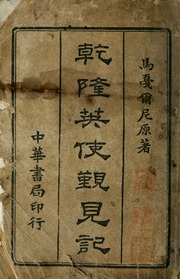 馬戞爾尼原著
乾隆英使觐見記
中華書局印行